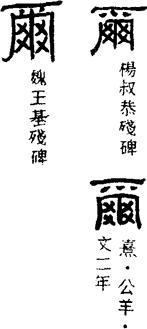 爾
楊叔恭殘碑
爾
熹·公羊·
文二年
爾
魏王基殘碑